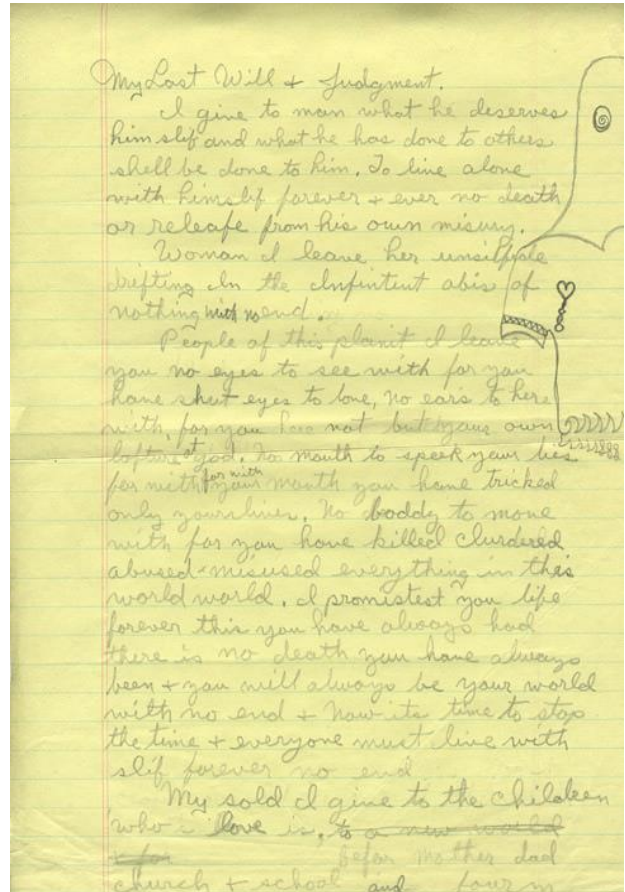 My Last Will + Judgment.
I give to man what he deserves
him slif and what he has done to others
shell be done to him. To live alone
with himslif forever + ever no death
or releafe from his own misury.
Woman I leave her
drifting In the Infintent abis of
nothing with no end.
People of this planit I leave
you no eyes to see with for you
have shut eyes to love, no ears to here
with, for you not but your own
god. No mouth to speek your lies
for with for with your mouth you have tricked
only No boddy to move
with for you have killed
abused - misused everything in this
world world. I promistest you life
forever this you have always had
there is no death you have always
been + you will always be your world
with no end + Now its time to stop
the time + everyone must live with
slif forever no end
My sold I give to the children
who's love is, to a new world
+ for befor mother dad
church + school and